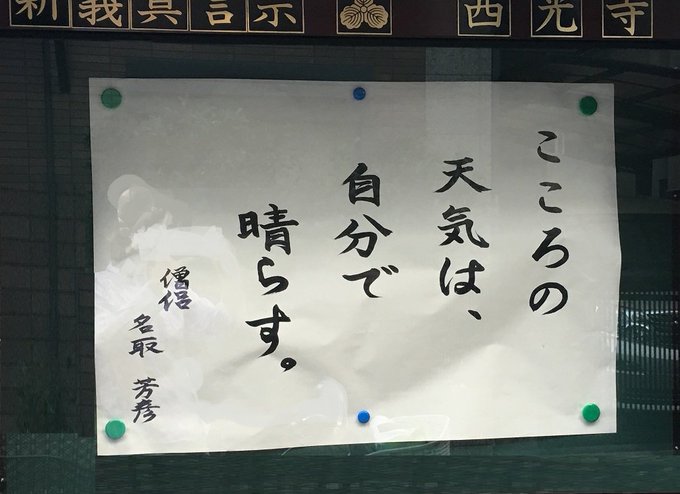 新義真言宗 西光寺
こころの
天気は、
自分で
晴らす。
僧侶
名取 芳彦